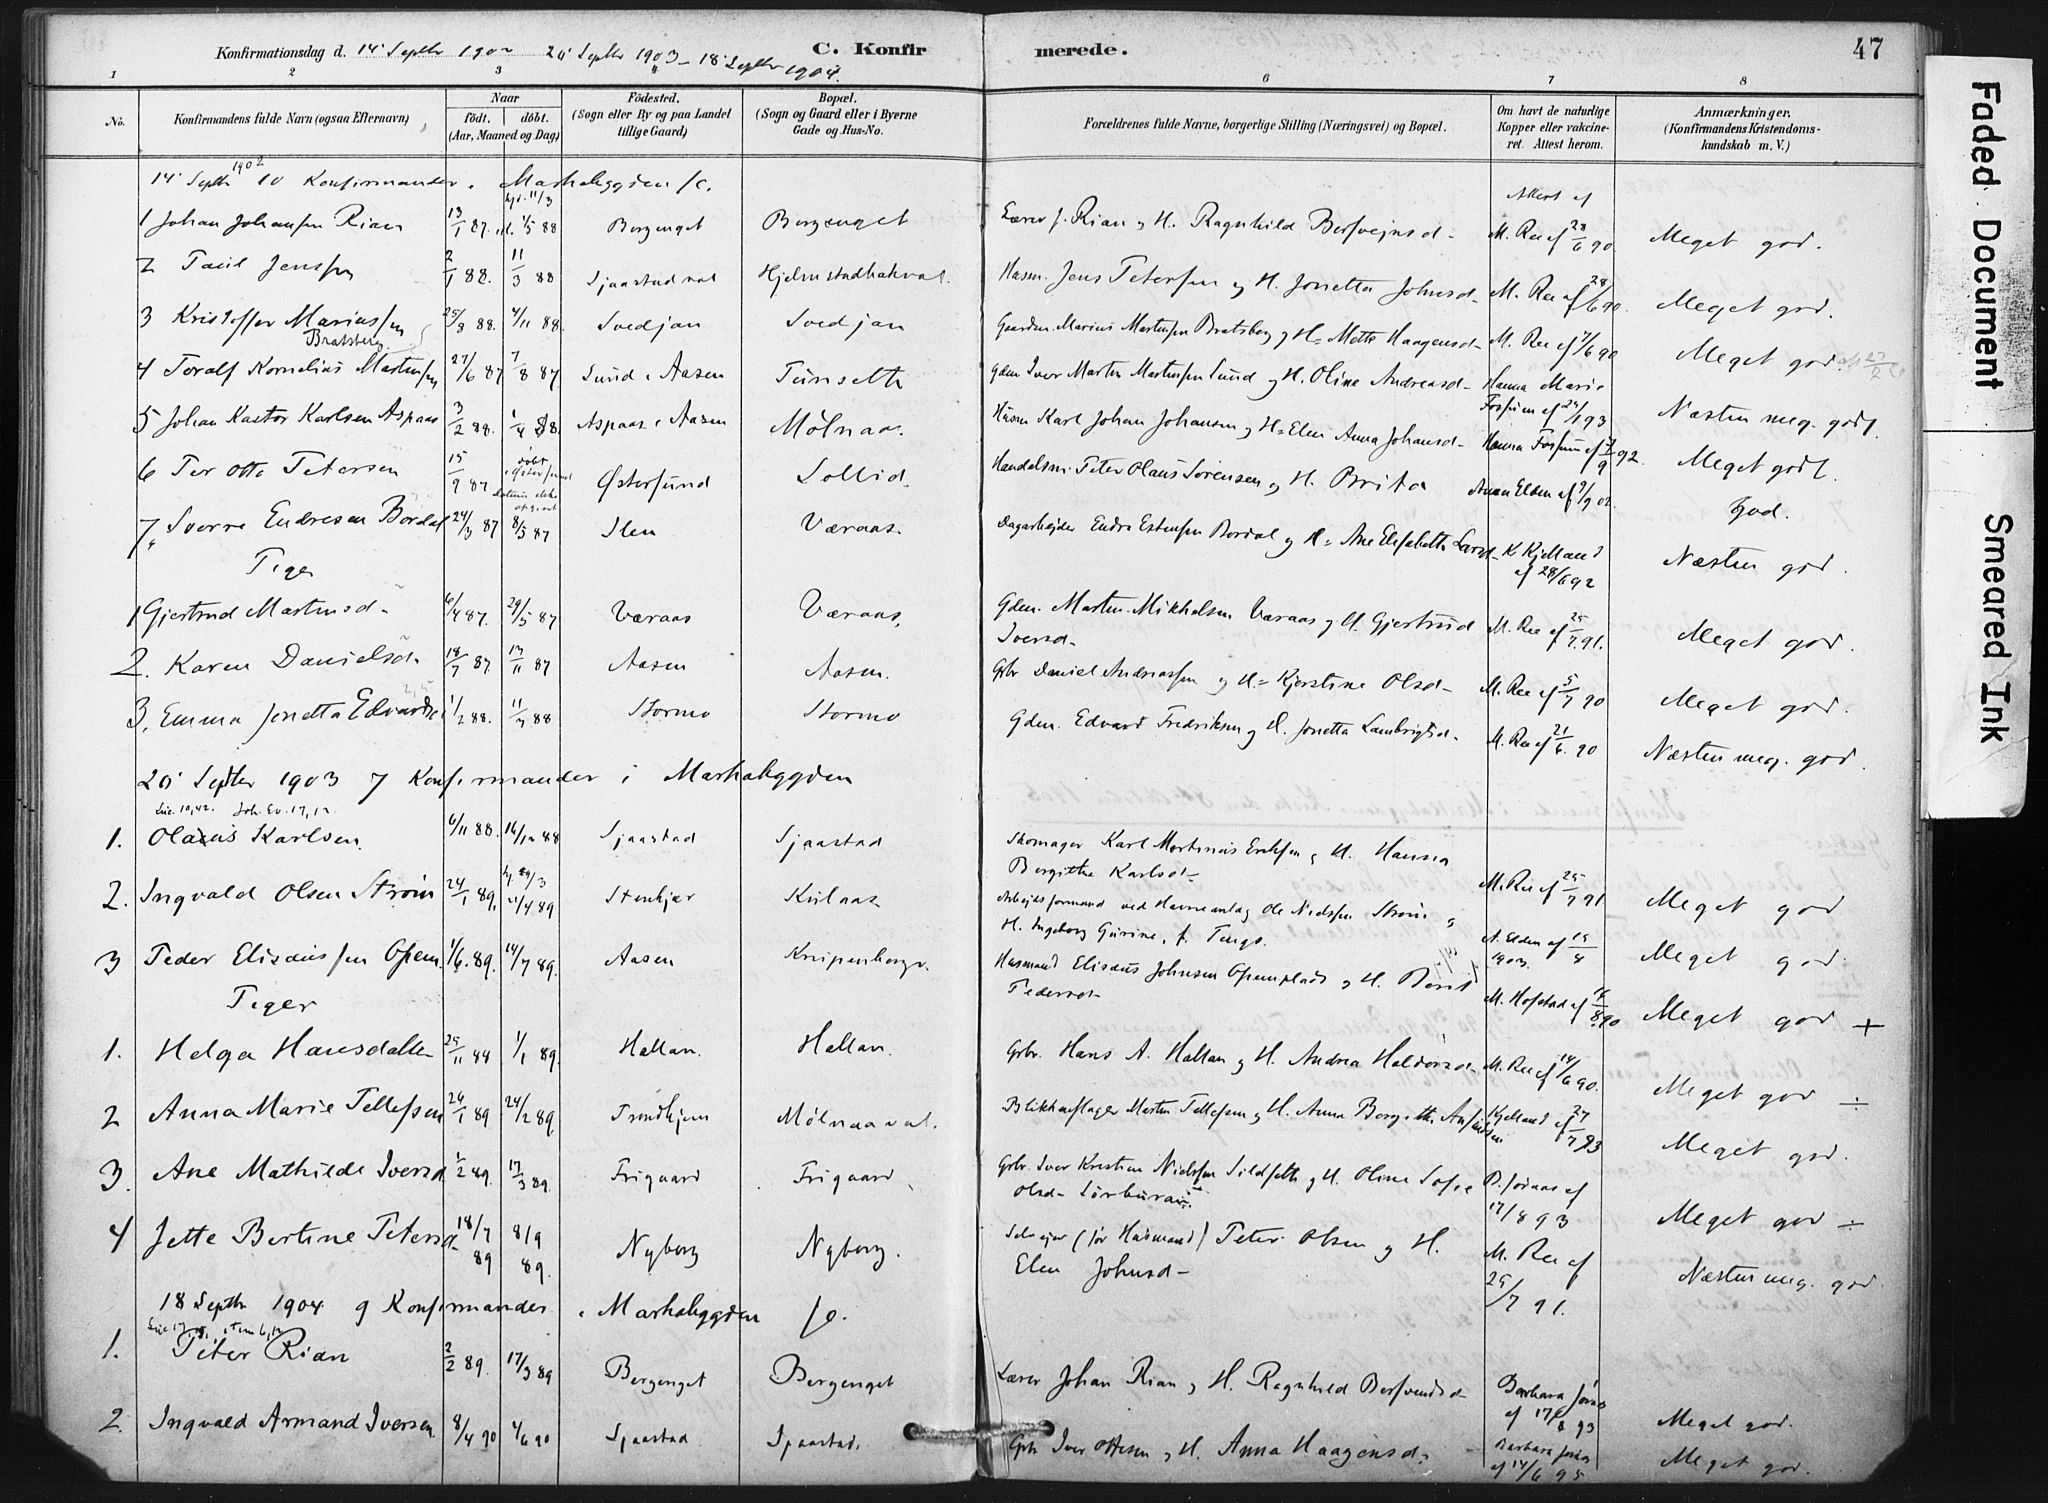 Konfirmationsdag d. 14' Septbr 1902 20' Septbr 1903 - 18' Septbr 1904. C. Konfirmerede. 47
1 2 3 6 7 8
No. Konfirmandens fulde Navn (ogsaa Efternavn) Naar födt. döbt. (Aar, Maaned og Dag) Födested. (Sogn eller By og paa Landet tillige Gaard) Bopæl. (Sogn og Gaard eller i Byerne Gade og Hus-No. Forældrenes fulde Navne, borgerlige Stilling (Næringsvei) og Bopæl. Om havt de naturlige Kopper eller vakcineret. Attest herom. Anmærkninger. (Konfirmandens Kristendomskundskab m. V.)
14' Septbr 1902 10 Konfirmander i Markabygden
Attest af
1 Johan Johansen Rian 13/1 87. 1/5 88 Bergenget Bergenget Lærer J. Rian og H. Ragnhild Bersvejnsd- M. Ree af 28/6 90 Meget god.
2 Paul Jenssen 2/1 88. 11/3 88 Sjaastadval Hjelmstadbakval. Husm. Jens Petersen og H. Jonetta Johnsd- M. Ree af 28/6 90. Meget god.
3 Kristoffer Mariussen Bratsberg 25/8 88. 4/11 88. Svedjan Svedjan Gaardm. Marius Martinsen Bratsberg og H= Mette Haagensd- M. Ree af 7/6 90 Meget god
4 Toralf Kornelius Martinsen 27/6 87 7/8 87 Lund i Aasen Tunseth Gdm Iver Martin Martinsen Lund og H. Oline Andreasd- Hanna Marie Fossum af 24/1 93 Næsten meg. godt.
5 Johan Kastor Karlsen Aspaas 3/2 88. 1/4 88. Aspaas i Aasen Mølnaas. Husm Karl Johan Johansen og H= Elen Anna Johansd- Hanna Fossum af 7/9 92. Meget godt.
6 Per Otto Petersen 15/9 87 døbt i Østersund Datum ikke opgivet Østersund Sollid. Handelsm. Peter Olaus Sørensen og H. Brita Anna Elden af 9/9 02. God.
7, Sverre Endresen Bordal 24/3 87 8/5 87 Ilen Væraas. Dagarbejder Endre Estensen Bordal og H= Ane Elisabeth Larsd- K Kjelland af 28/6 92 Næsten god.
Piger
1 Gjertrud Martinsd- 6/4 87. 29/5 87 Væraas Væraas. Gdm. Martin Mikkelsen Væraas og H. Gjertrud Iversd- M. Ree af 25/7 91. Meget god.
2. Karen Danielsd- 18/7 87 13/11 87 Aasen Aasen. Gbr Daniel Andreassen og H= Kjerstine Olsd- M. Ree af 5/7 90 Meget god.
3. Emma Jonetta Edvardsd 1/2 88. 11/3 88 Stormo Stormo Gdm. Edvard Fredriksen og H. Jonetta Lambrigtsd- M. Ree af 21/6. 90 Næsten meg. god.
20' Septbr 1903 7 Konfirmander i Markabygden
Luc. 10,42. Joh. Ev. 17,12.
1. Olaus Karlsen. 6/11 88. 16/12 88 Sjaastad Sjaastad Skomager Karl Martinus Eriksen og H. Hansia Bergithe Karlsd- M. Ree af 25/7 91 Meget god
2. Ingvald Olsen Strøm 24/1 89. 21/4 89 Stenkjær Kulaas Arbejdsformand ved Havneanlæg Ole Nielssen Strøm og H. Ingeborg Gurine, f. Tings. A. Elden af 15/8 1903. Meget god
3 Peder Elisæussen Opem 1/6. 89. 14/7 89. Aasen Knipenberg. Husmand Elisæus Johnsen Opemplads og H. Berit Pedersd- M. Hofstad af 16/8 90 Meget god +
Piger
1. Helga Hansdatter 25/11 88 1/1 89. Hallan. Hallan. Gbr. Hans A. Hallan og H. Andrea Haldorsd- M. Ree af 14/6 90. Meget god ÷
2 Anna Marie Tellefsen 26/1 89 24/2 89. Trondhjem Mølnaaval. Blikkenslager Martin Tellefsen og H. Anna Bergithe Kjelland af 27/7 93 Meget god.
3. Ane Mathilde Iversd 1/2 89. 17/3 89. Frigaard Frigaard. Gbr. Iver Kristian Nielssen Sildseth og H. Oline Sofie Olsd- P. Joraas af 17/8 93 Meget god ÷
4 Jette Bertine Petersd- 18/7 89 8/9 89. Nyborg Nyborg. Selvejer (før Husmand) Peter Olsen og H. Elen Johnsd- M. Ree af 25/7 91. Næsten meg. god
18 Septbr 1904 9 Konfirmander i Markabygden
1. Peter Rian 2/2 89. 17/3 89 Bergenget Bergenget Lærer Johan Rian og H. Ragnhild Bersvendsd- Barbara af 17/8 93 Meget god.
2. Ingvald Armand Iversen. 8/4 90 4/6 90 Sjaastad Sjaastad. Gbr Iver Ottesen og H. Anna Haagensd- Barbara af 14/6 95 Meget god.
Faded Document
Smeared Ink